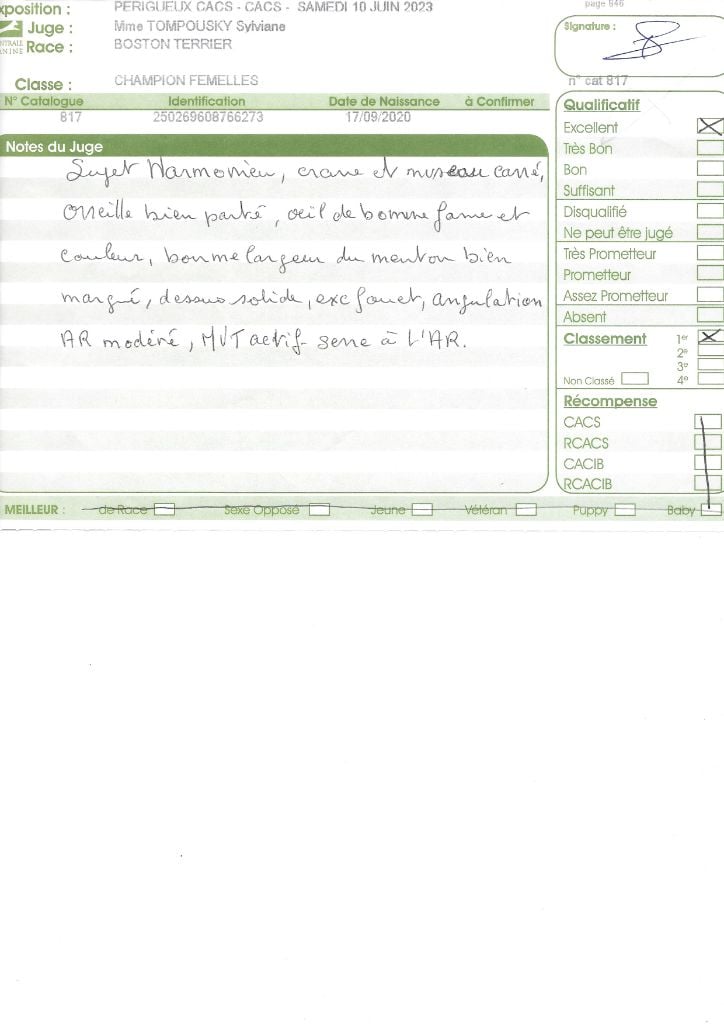 xposition : PERIGUEUX CACS - CACS - SAMEDI 10 JUIN 2023
page 846
Signature :
Juge : Mme TOMPOUSKY Sylviane
NTRALE
ANINE
Race : BOSTON TERRIER
Classe : CHAMPION FEMELLES
n° cat 817
N° Catalogue Identification Date de Naissance à Confirmer
817 250269608766273 17/09/2020
Notes du Juge
Sujet Harmonieu, crane et museau carré,
Oreille bien porté, oeil de bonne forme et
couleur, bonne largeur du menton bien
marqué, dessus solide, exc fouet, angulation
AR modéré, MVT actif serre à l'AR.
Qualificatif
Excellent
Très Bon
Bon
Suffisant
Disqualifié
Ne peut être jugé
Très Prometteur
Prometteur
Assez Prometteur
Absent
Classement 1er
2e
3e
Non Classé 4e
Récompense
CACS
RCACS
CACIB
RCACIB
MEILLEUR : de Race Sexe Opposé Jeune Vétéran Puppy Baby